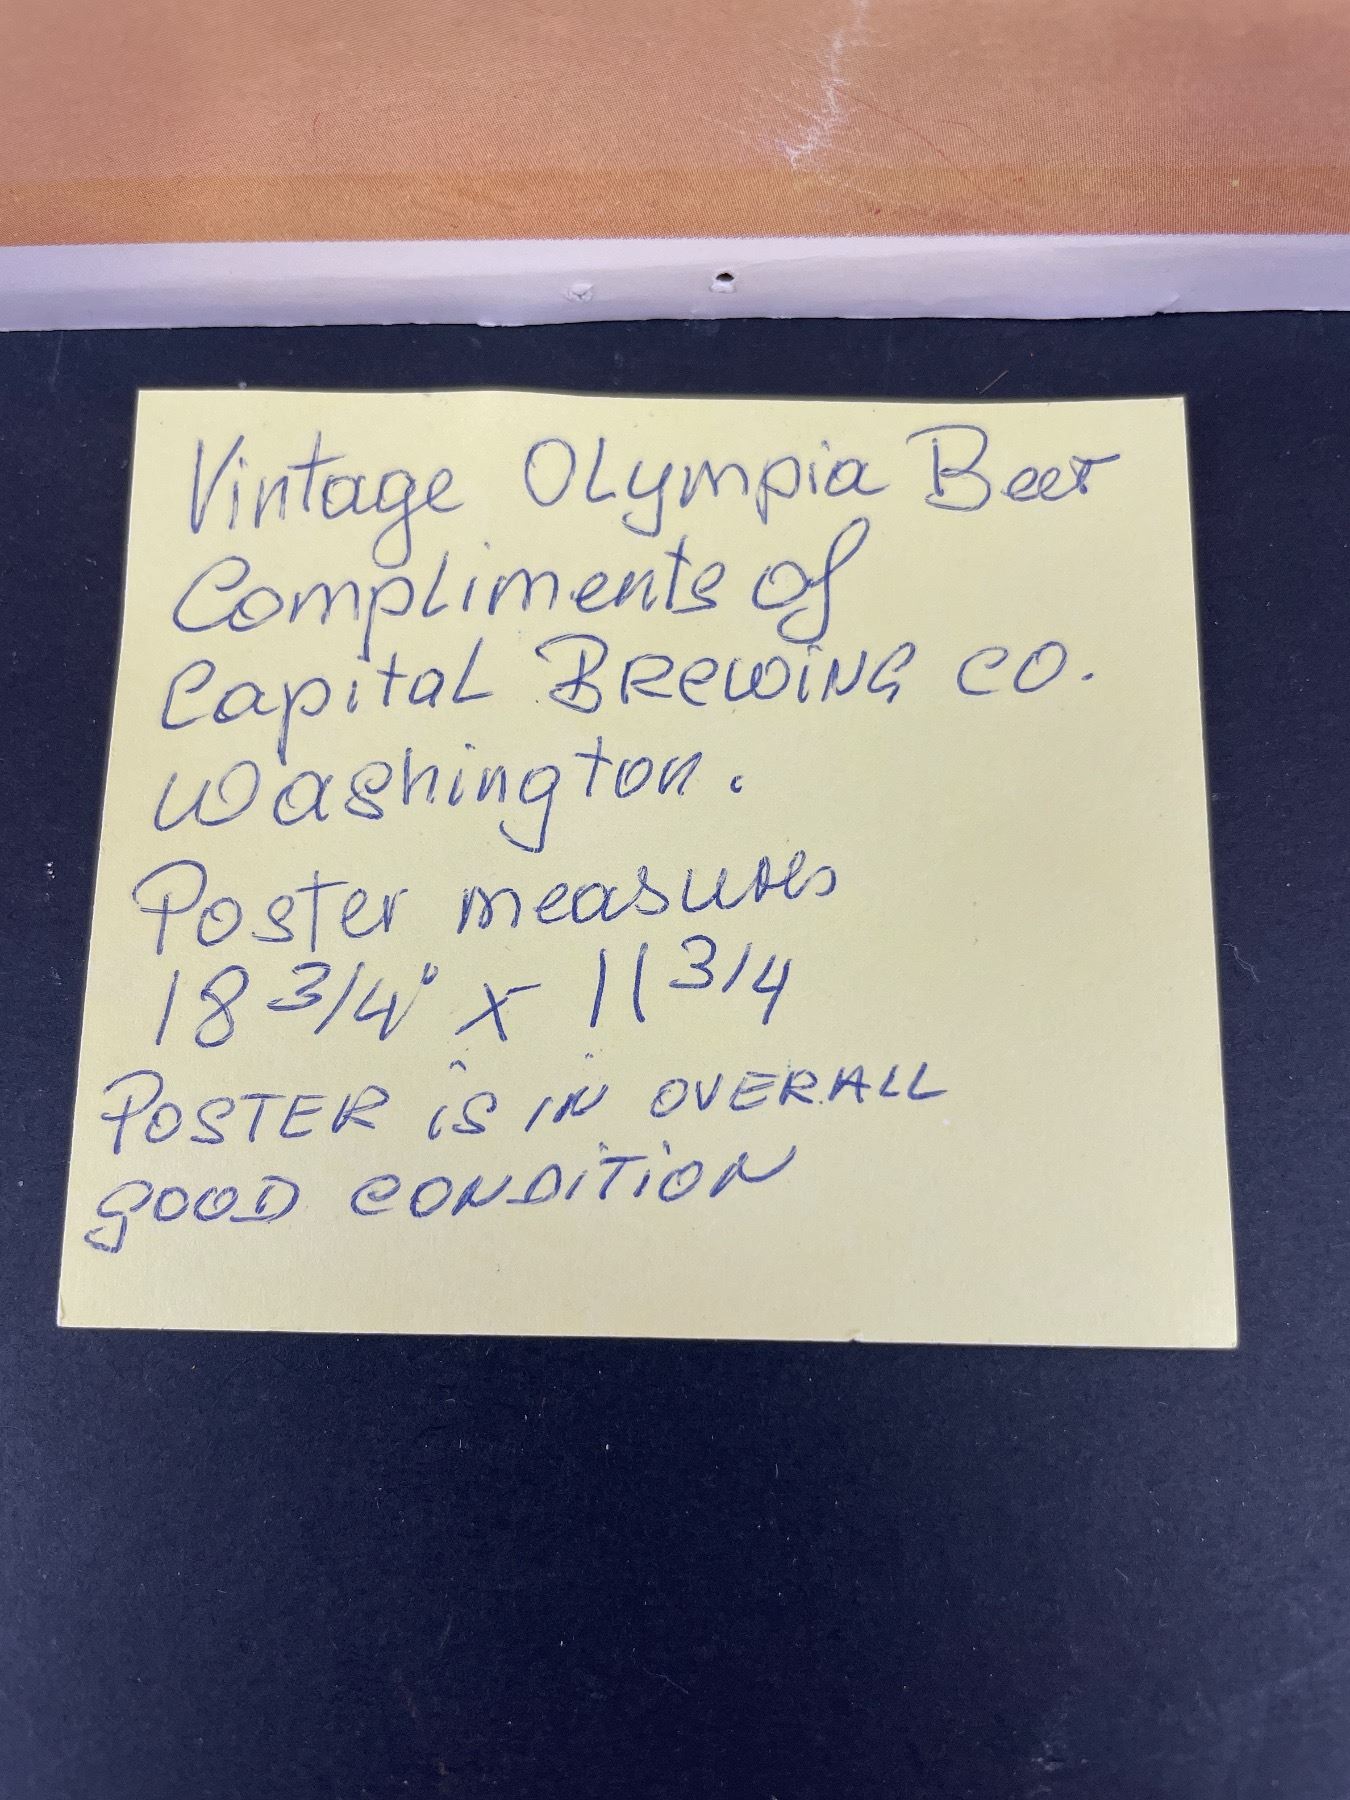 Vintage OLympia Beer
Compliments of
Capital BREWING CO.
Washington.
Poster measures
18 3/4" x 11 3/4
POSTER iS IN OVERALL
GOOD CONDiTiON